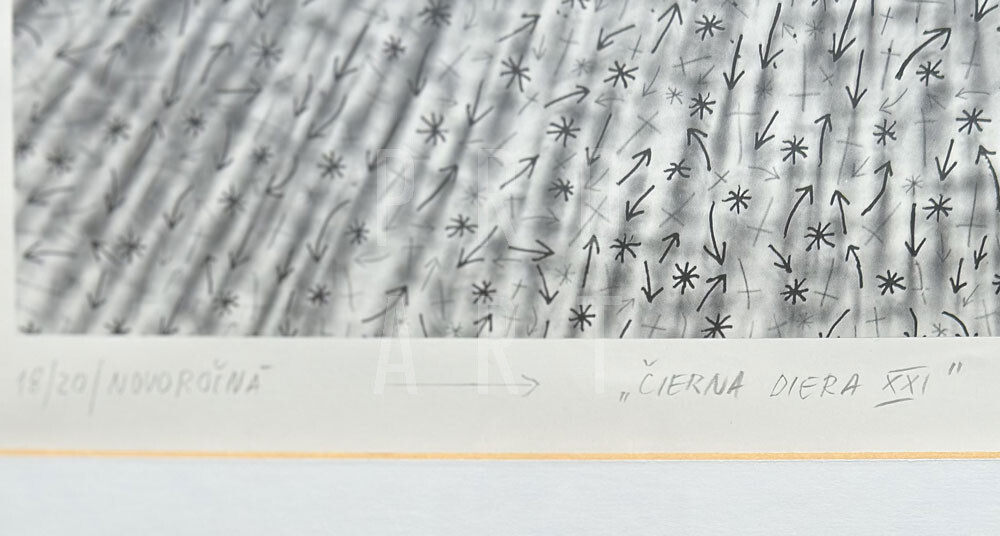 18/20/NOVOROČNÁ → „ČIERNA DIERA XXI"
PRE
ART